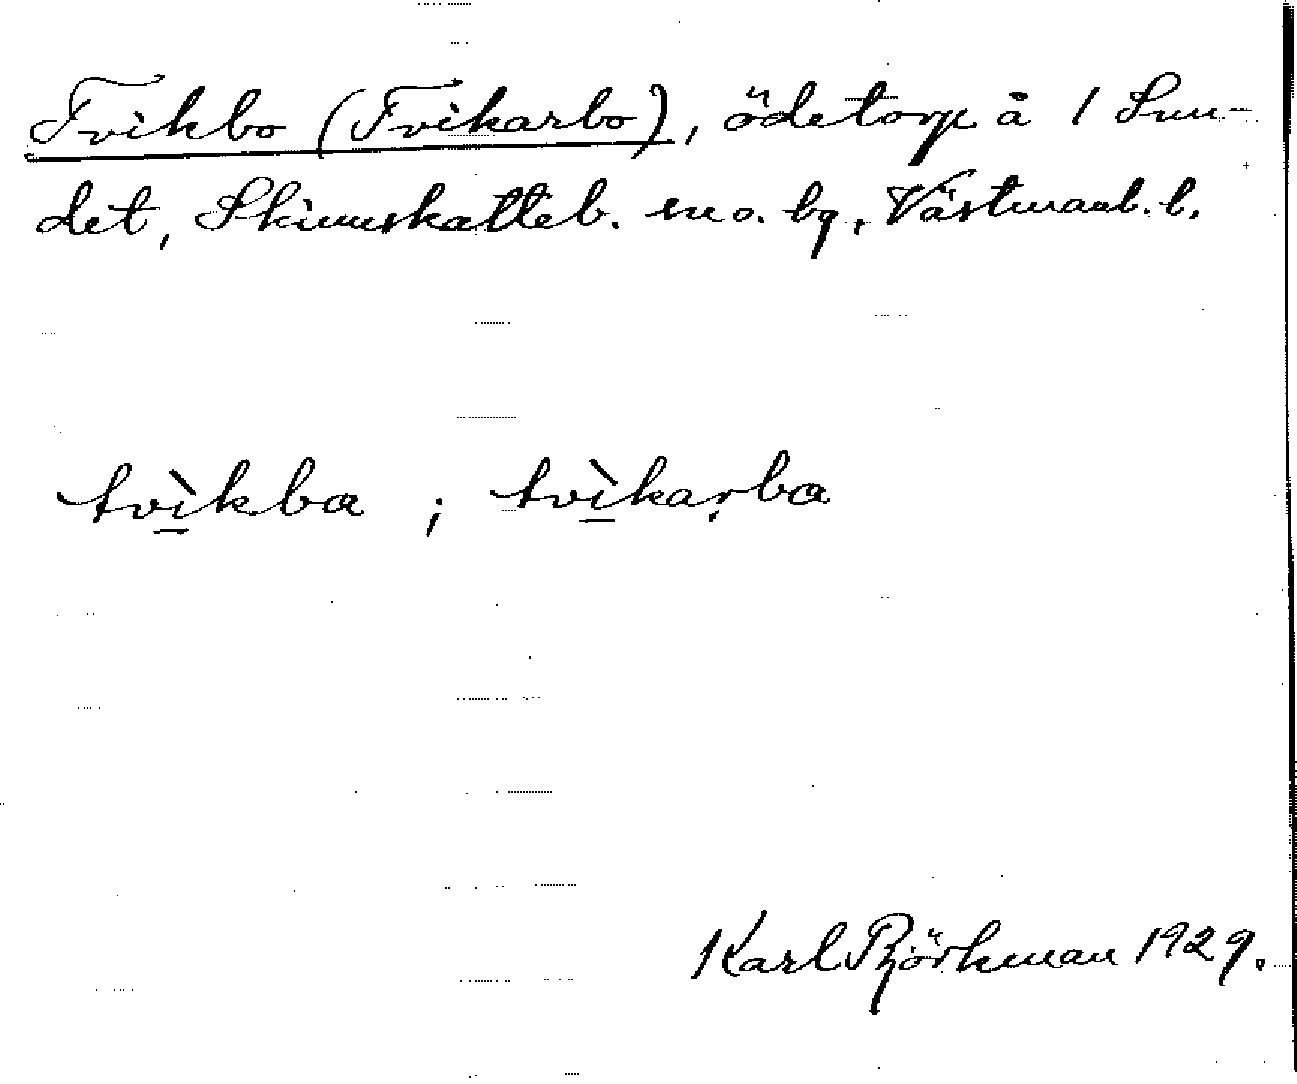 Tvikbo (Tvikarbo), ödetorp å 1 Sun-
det, Skinnskatteb. sn o. bg, Västmanl. l.
tvìkba ; tvìkaṛba
Karl Björkman 1929.